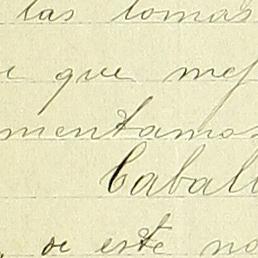 las tomas
que mej
mentamos
Caball
de este no